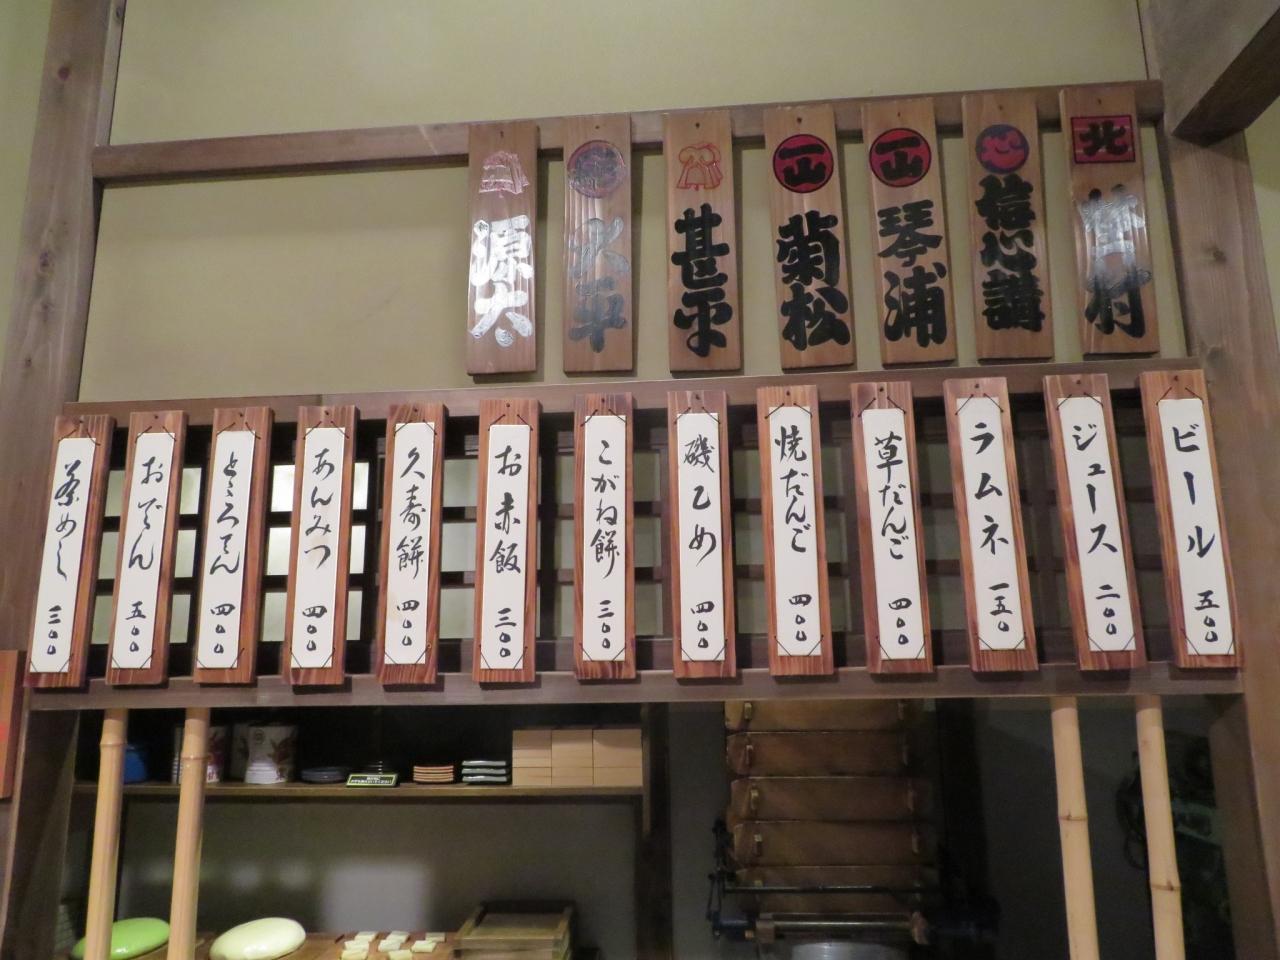 北
信心講
一山 琴浦
一山 菊松
甚平
源太
ビール 五〇〇
ジュース 二〇〇
ラムネ 一五〇
草だんご 四〇〇
焼だんご 四〇〇
磯乙め 四〇〇
こがね餅 三〇〇
お赤飯 三〇〇
久寿餅 四〇〇
あんみつ 四〇〇
ところてん 四〇〇
おでん 五〇〇
茶めし 三〇〇